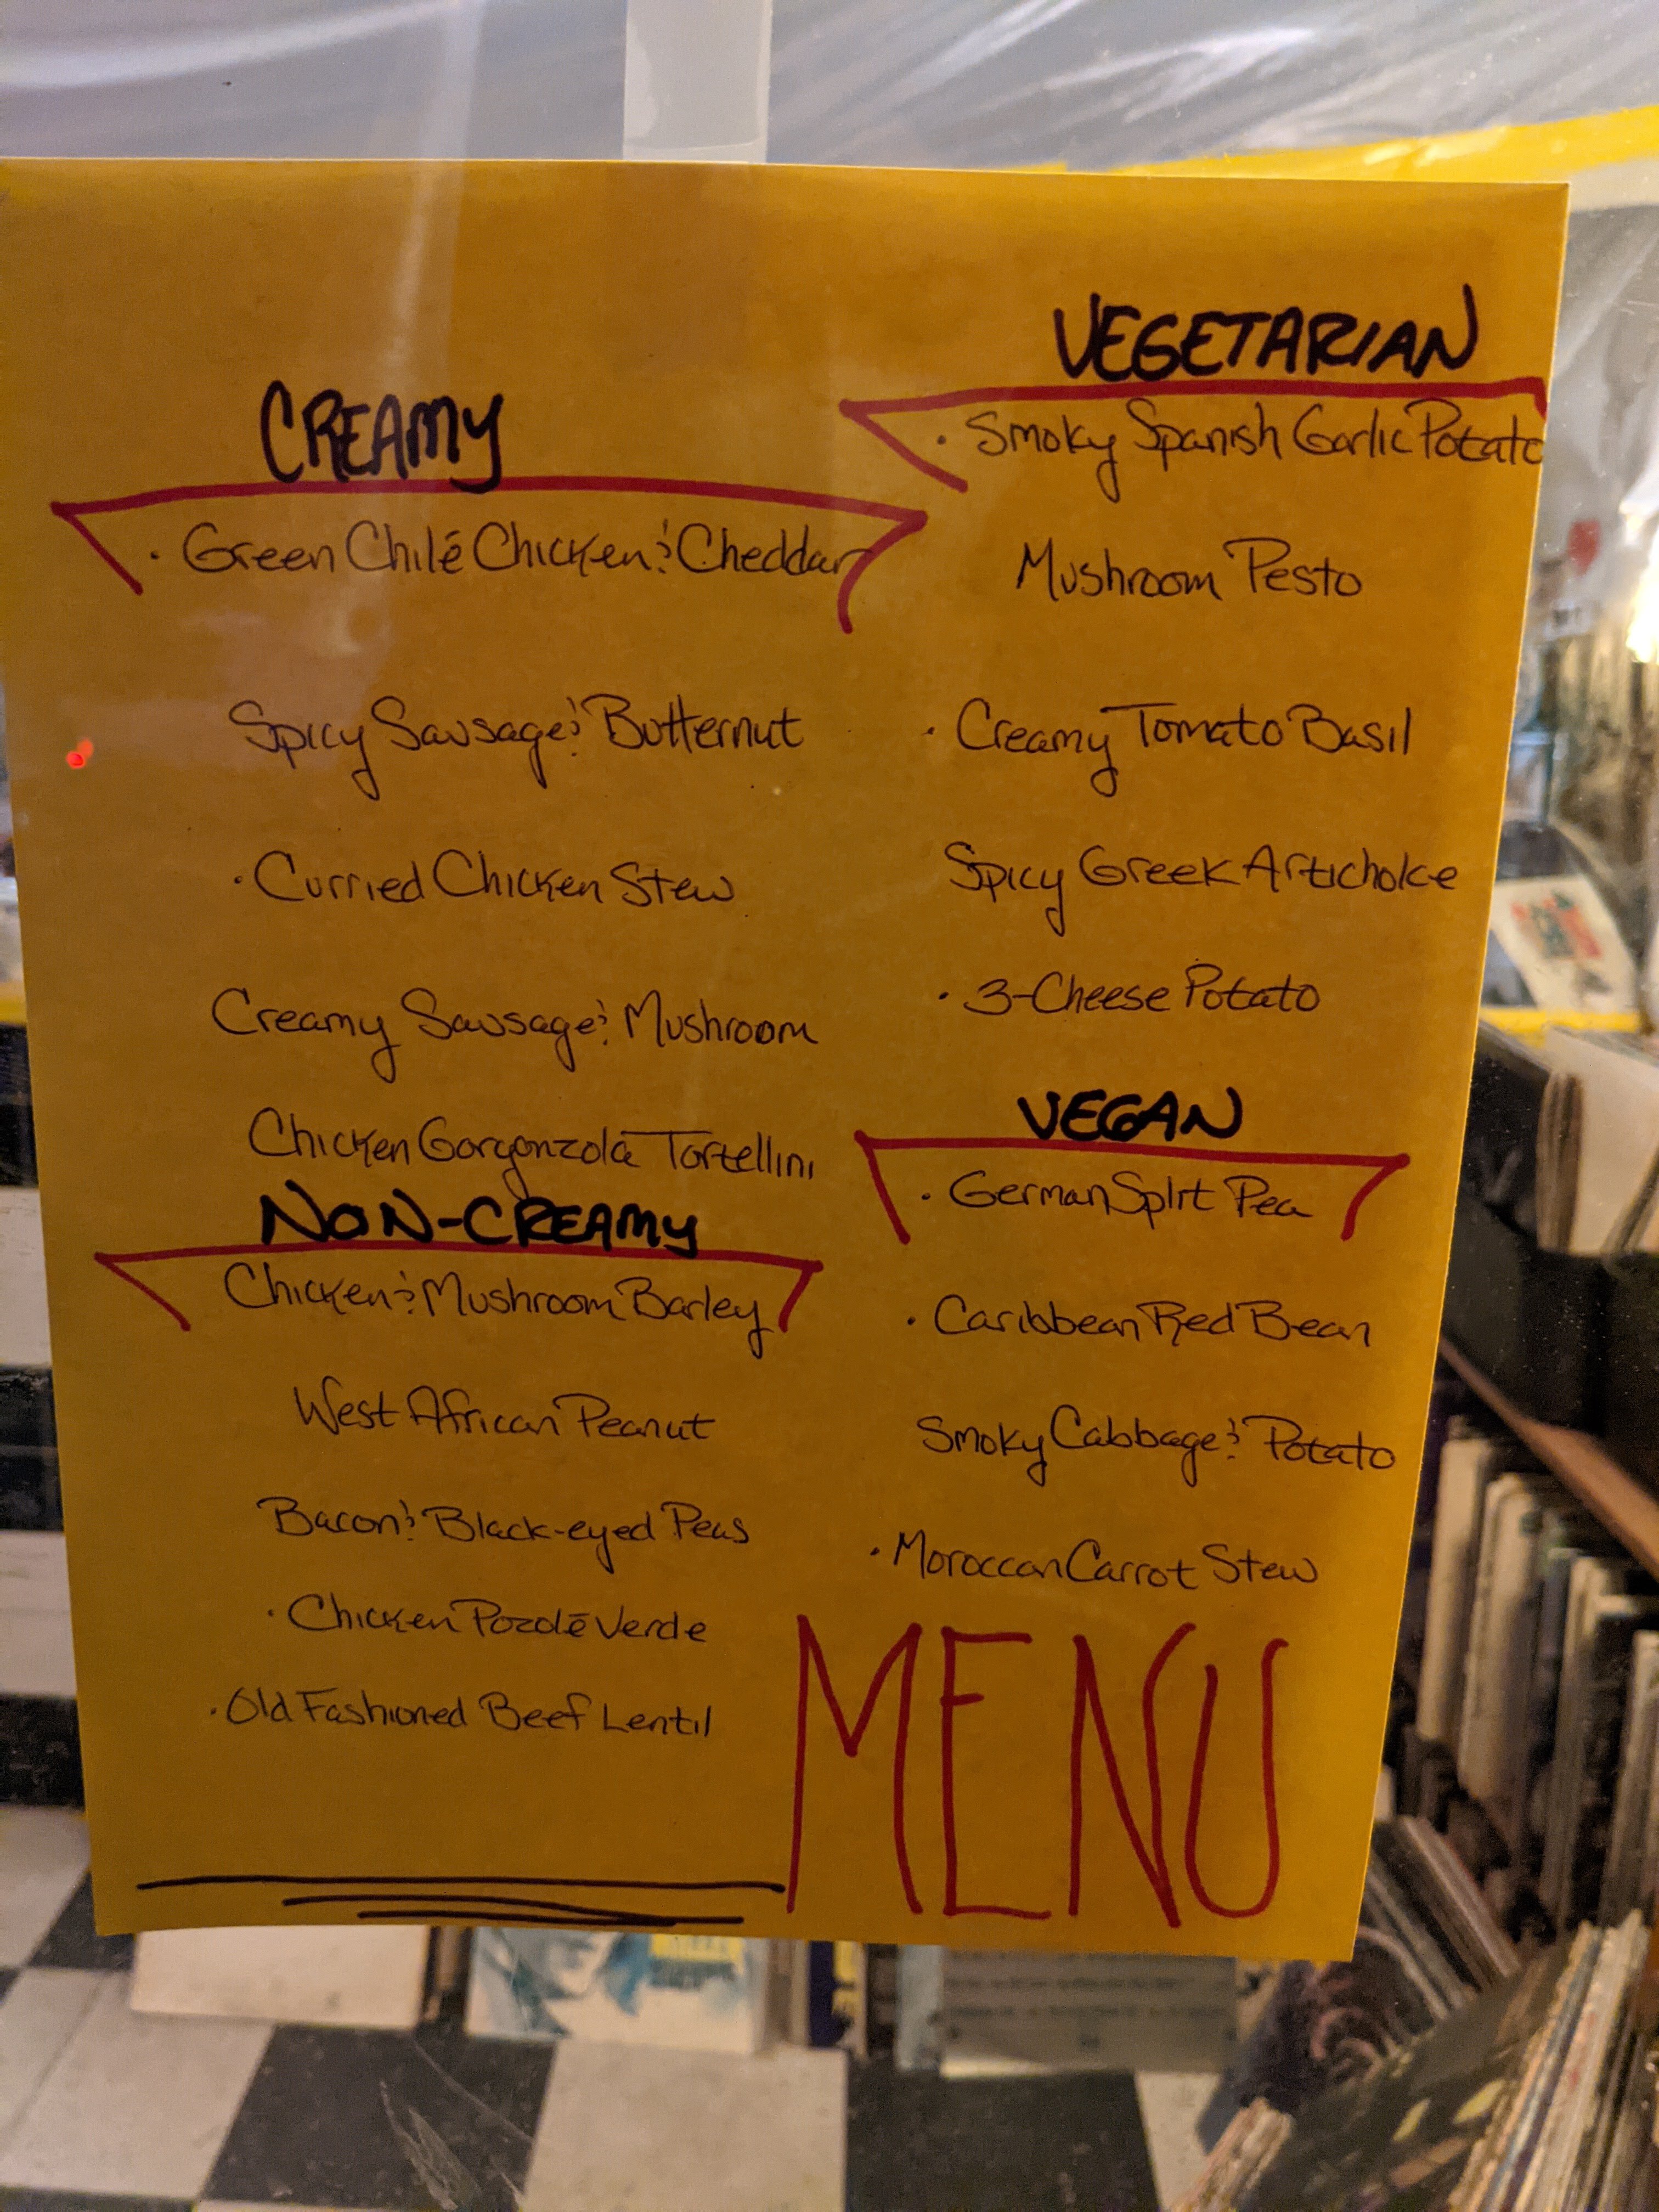 CREAMY
· Green Chilé Chicken & Cheddar
Spicy Sausage & Butternut
· Curried Chicken Stew
Creamy Sausage & Mushroom
Chicken Gorgonzola Tortellini
NON-CREAMY
Chicken & Mushroom Barley
West African Peanut
Bacon & Black-eyed Peas
· Chicken Pozolē Verde
· Old Fashioned Beef Lentil
VEGETARIAN
· Smoky Spanish Garlic Potato
Mushroom Pesto
· Creamy Tomato Basil
Spicy Greek Artichoke
· 3-Cheese Potato
VEGAN
· German Split Pea
· Caribbean Red Bean
Smoky Cabbage & Potato
· Moroccan Carrot Stew
MENU